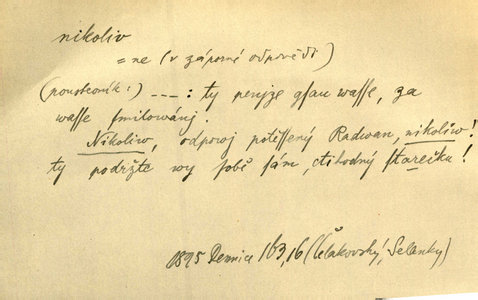 nikoliv
= ne (v záporné odpovědi)
(poustevník:) ---: ty penjze gsau wasse, za
wasse smilowánj.
Nikoliw, odpowj potěssený Radwan, nikoliw!
ty podržte wy sobě sám, ctihodný stařečku!
1825 Dennice 1b3,16 (Čelakovský, Selanky)